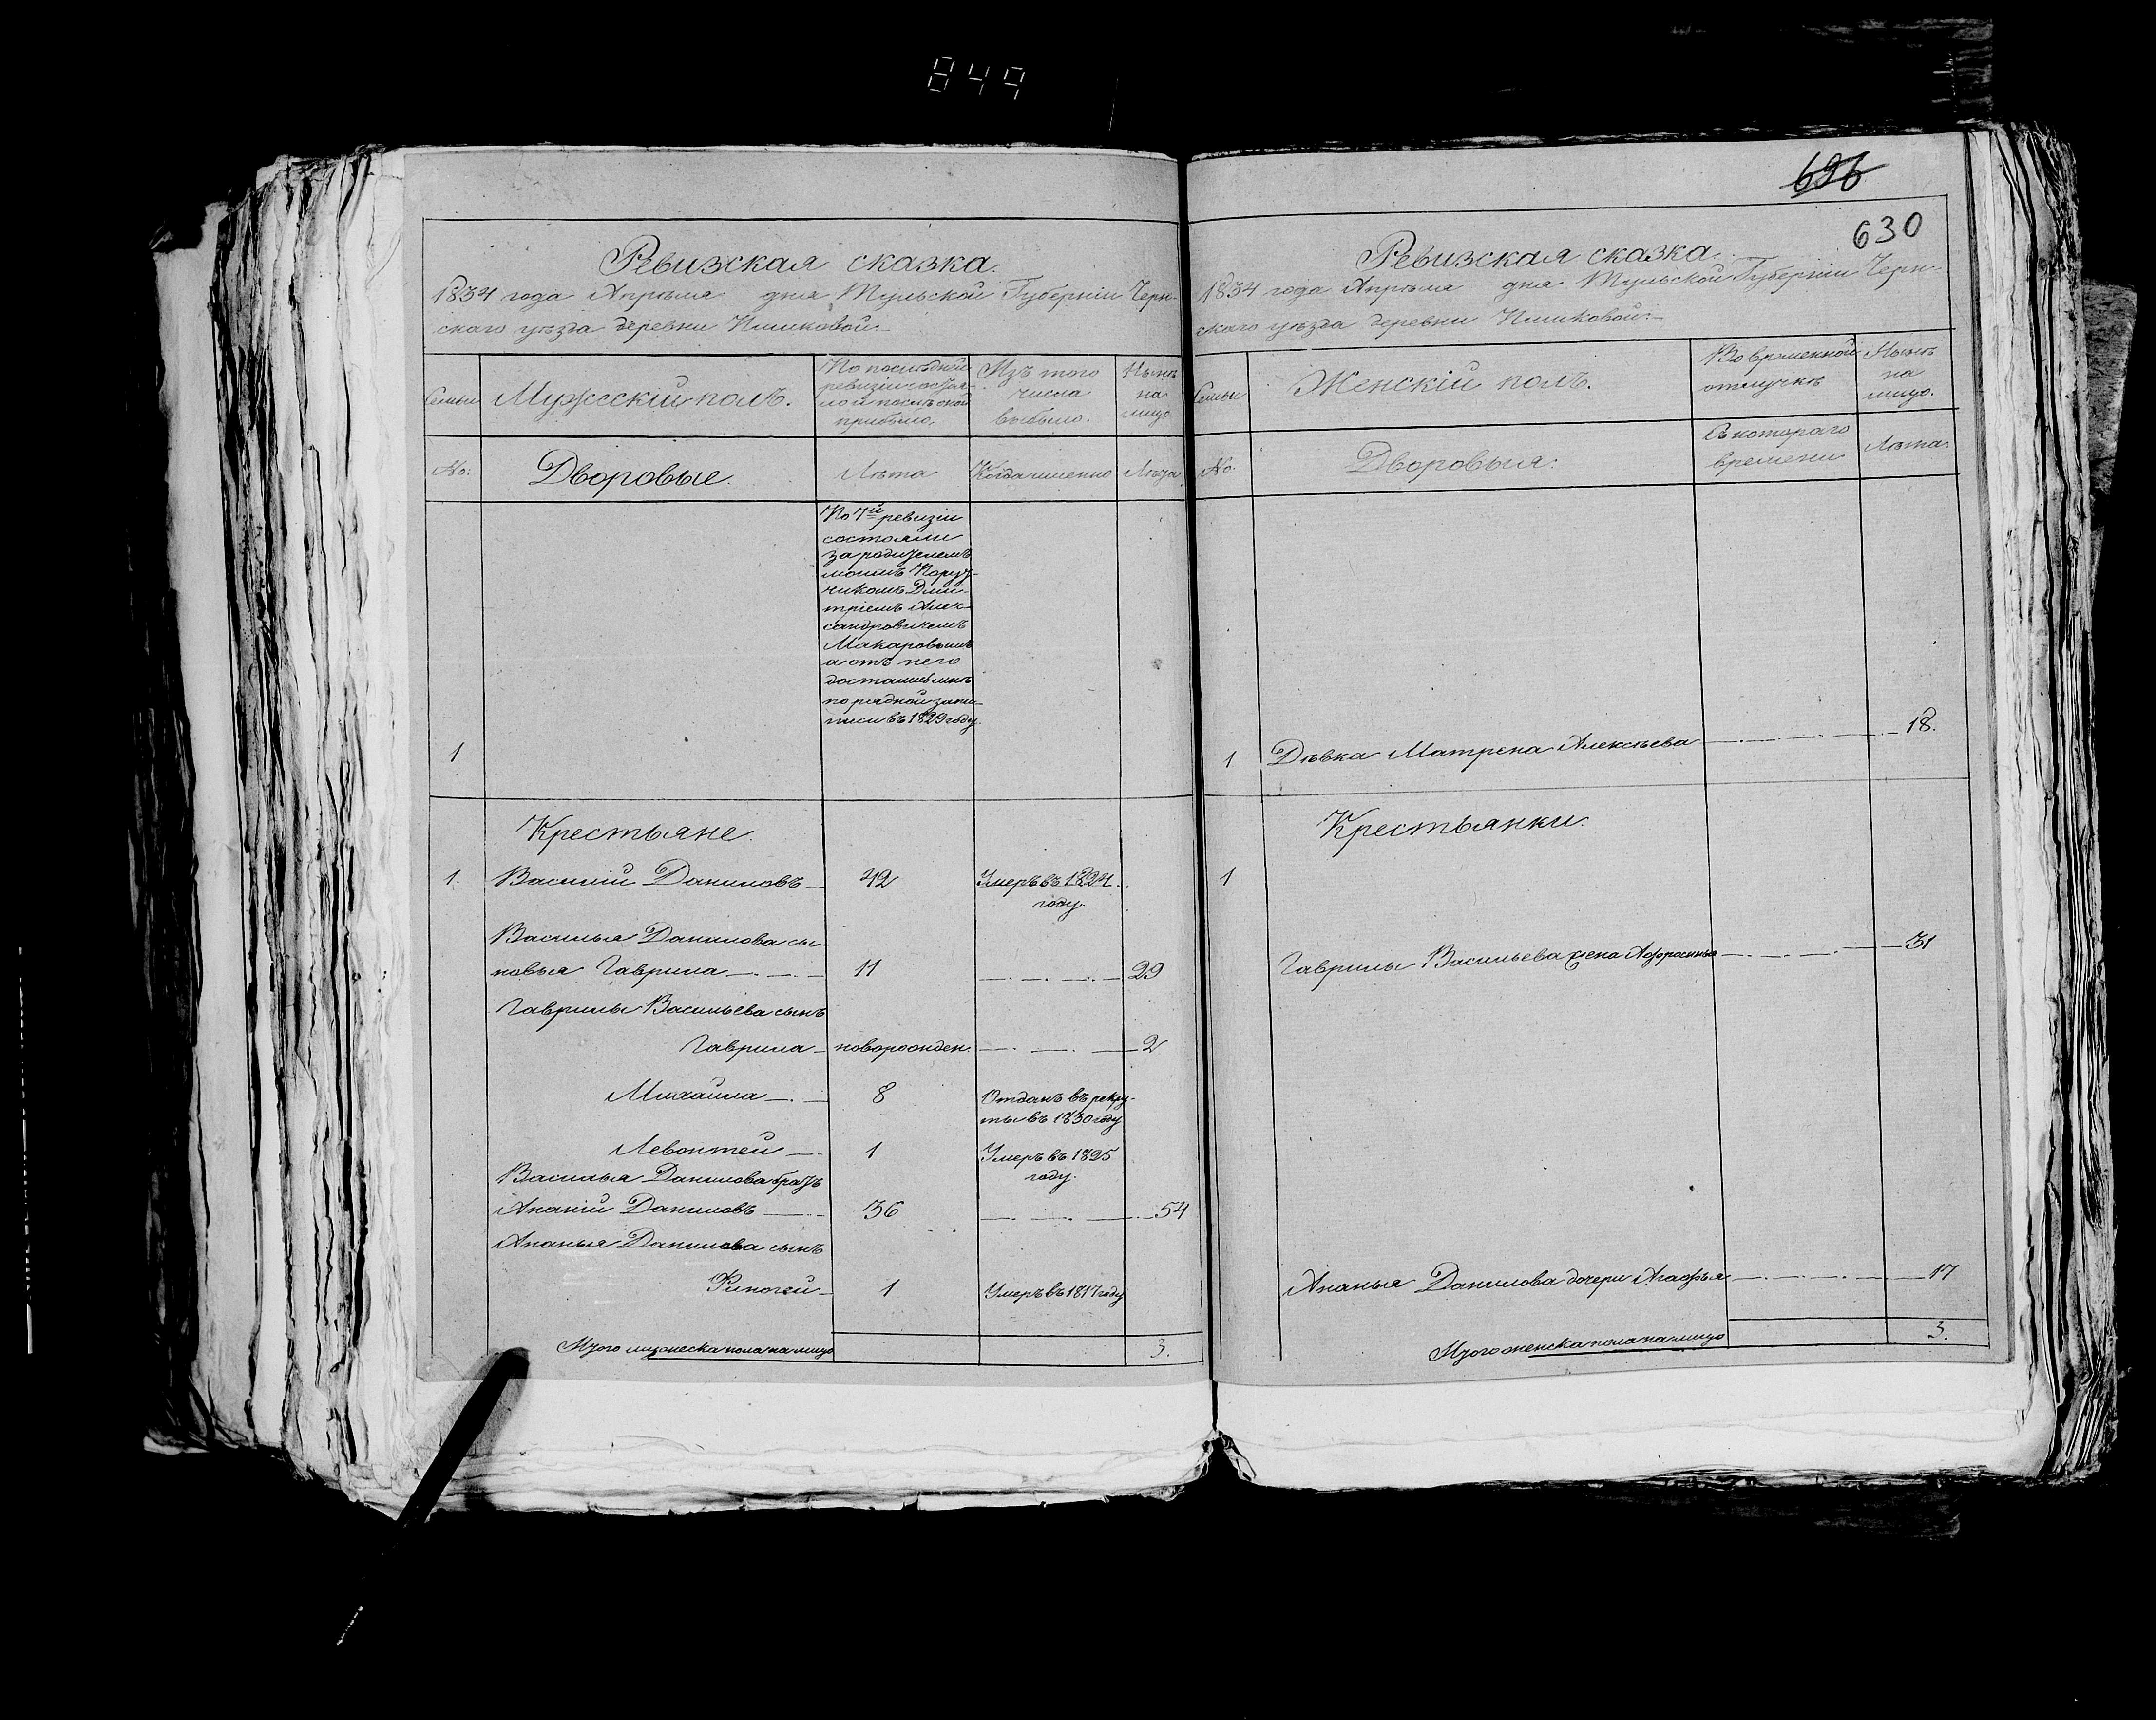 849
Ревизская сказка.
1834 года Апреля дня Тульской Губернiи Черн-
скаго уѣзда деревни
Семьи
Мужескiй полъ.
По последней
ревизiи состоя-
ло и послѣ оной
прибыло.
Изъ того
числа
выбыло.
Нынѣ
на
лицо
№:
Дворовые.
Лѣта
Когда именно
Лѣта
По 7й ревизiи
состояли
за родителемъ
моимъ Поруч-
икомъ Дми-
трiемъ Алек-
сандровичемъ
Макаровымъ
а отъ него
достались мнѣ
по рядной запи-
писи въ 1829 году.
1
Крестьяне.
1. Василiй Даниловъ 42 Умеръ въ 1824
году.
Василья Данилова сы-
новья Гаврила 11 29
Гаврилы Васильева сынъ
Гаврила новорожден. 2
Михайла 8 Отданъ въ рекру-
ты въ 1830 году
Левонтей 1 Умеръ въ 1825
году.
Василья Данилова братъ
Ананiй Даниловъ 36 54
Ананья Данилова сынъ
1 Умеръ въ 1817 году
Итого мужеска пола на лицо 3.
696
630
Ревизская сказка.
1834 года Апреля дня Тульской Губернiи Черн-
скаго уѣзда деревни
Семьи
Женскiй полъ.
Во временной
отлучкѣ
Нынѣ
на
лицо.
№.
Дворовыя.
Съ котораго
времени
Лѣта.
1 Дѣвка Матрена Алексѣева 18.
Крестьянки.
1
Гаврилы Васильева жена Афросинья 31
Ананья Данилова дочери Агафья 17
Итого женска пола на лицо 3.